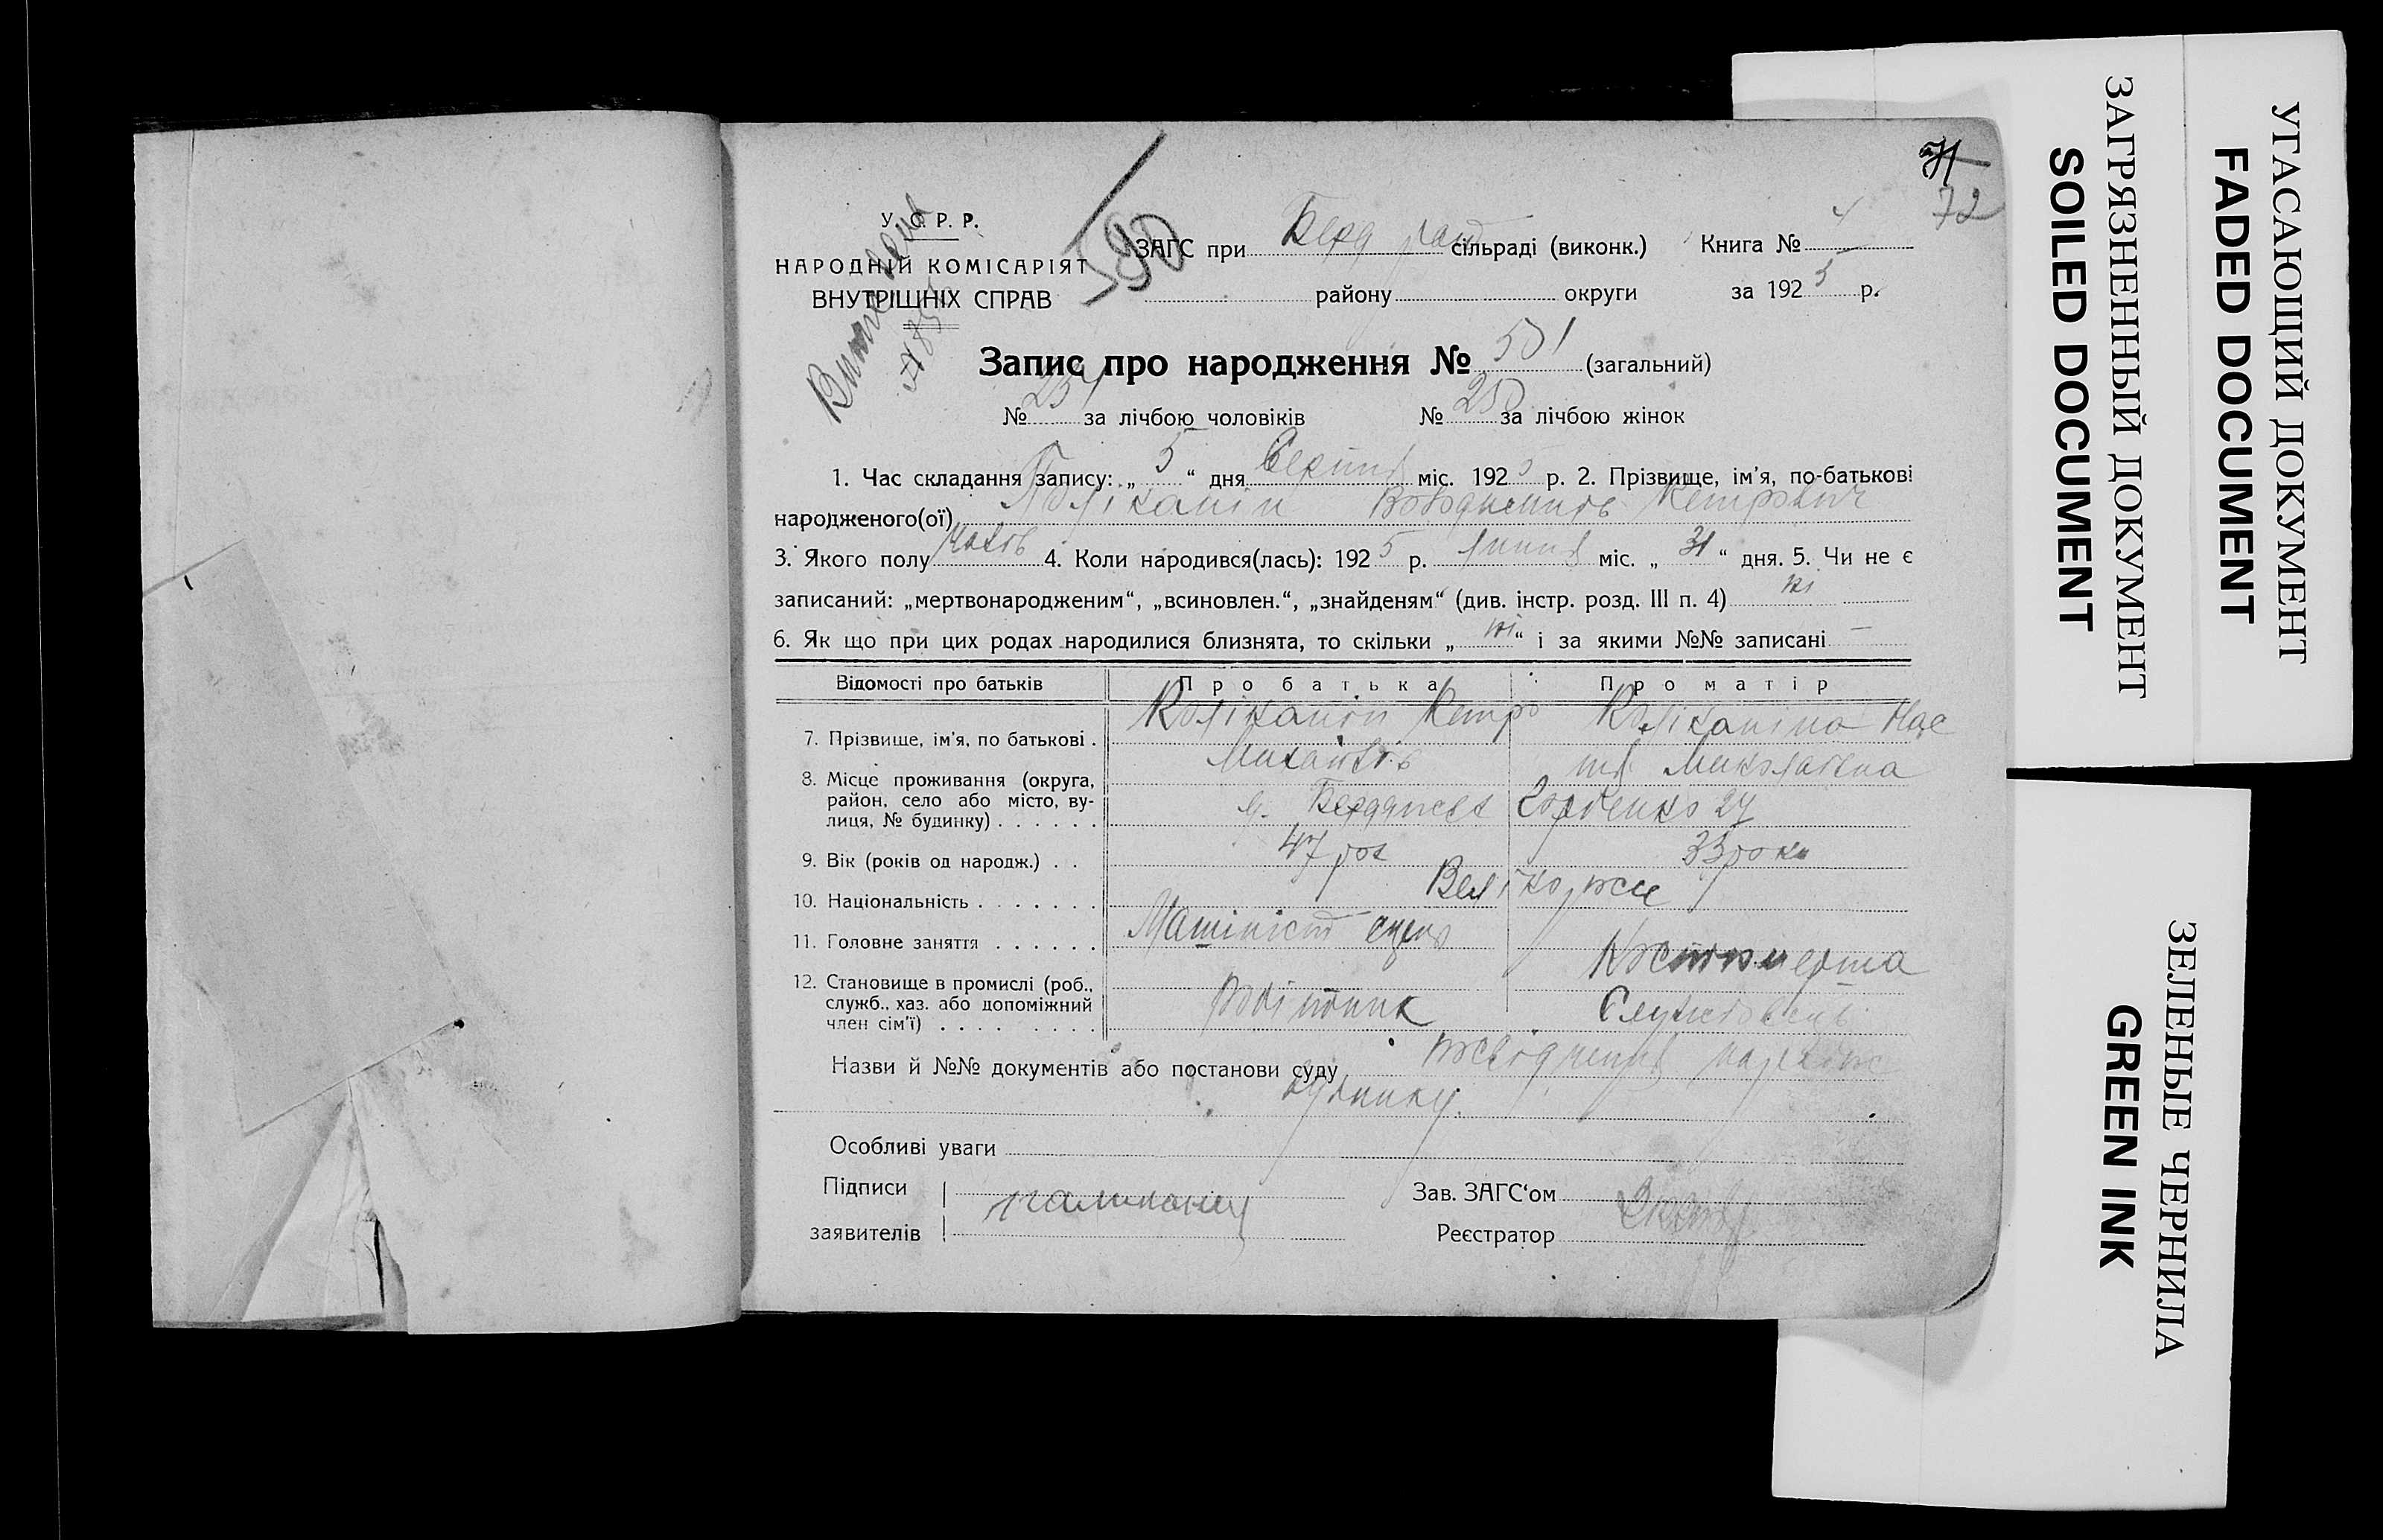 72
У. С. Р. Р.
НАРОДНІЙ КОМІСАРІЯТ
ВНУТРІШНІХ СПРАВ
590
ЗАГС при Берд сільраді (виконк.) Книга № 4
району округи за 1925 р.
Запис про народження № 501 (загальний)
№ 251 за лічбою чоловіків № 250 за лічбою жінок
1. Час складання запису: „5“ дня Серпня міс. 1925 р. 2. Прізвище, ім'я, по-батькові
народженого(ої) Володимир Петрович
3. Якого полу 4. Коли народився(лась): 1925 р. липня міс. „31“ дня. 5. Чи не є
записаний: „мертвонародженим“, „всиновлен.“, „знайденям“ (див. інстр. розд. III п. 4) ні
6. Як що при цих родах народилися близнята, то скільки „ні“ і за якими №№ записані —
Відомості про батьків Про батька Про матір
7. Прізвище, ім'я, по батькові . Петро Нас
Михайлів тя Миколаєвна
8. Місце проживання (округа,
район, село або місто, ву-
лиця, № будинку) . . . . . . м. Бердичев Горбенко 24
9. Вік (років од народж.) . . 47 рок 33 роки
10. Національність . . . . . . .
11. Головне заняття . . . . . . Машініст
12. Становище в промислі (роб.,
служб., хаз. або допоміжний
член сім'ї) . . . . . . . . робітник
Назви й №№ документів або постанови суду
будинку.
Особливі уваги
Підписи Зав. ЗАГС'ом
заявителів Реєстратор
УГАСАЮЩИЙ ДОКУМЕНТ
FADED DOCUMENT
ЗАГРЯЗНЕННЫЙ ДОКУМЕНТ
SOILED DOCUMENT
ЗЕЛЕНЫЕ ЧЕРНИЛА
GREEN INK